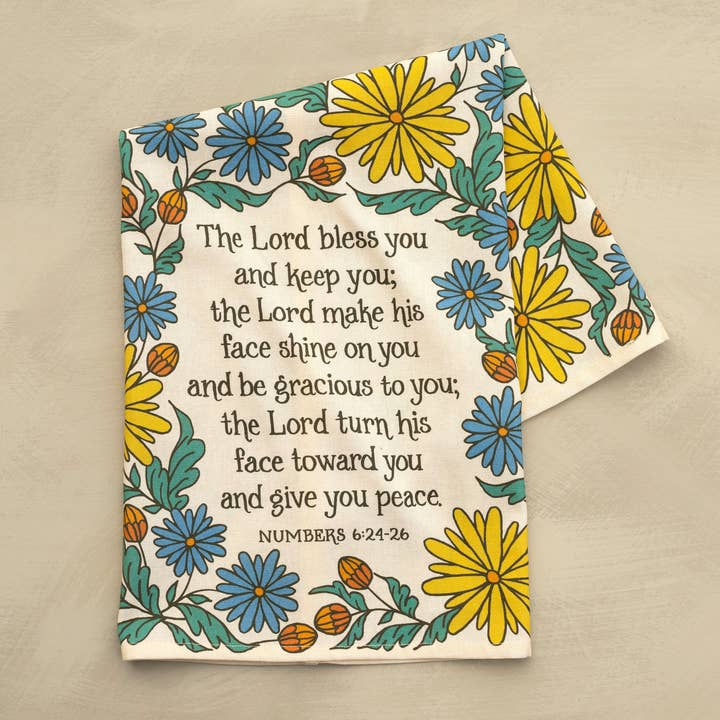 The Lord bless you
and keep you;
the Lord make his
face shine on you
and be gracious to you;
the Lord turn his
face toward you
and give you peace.
NUMBERS 6:24-26